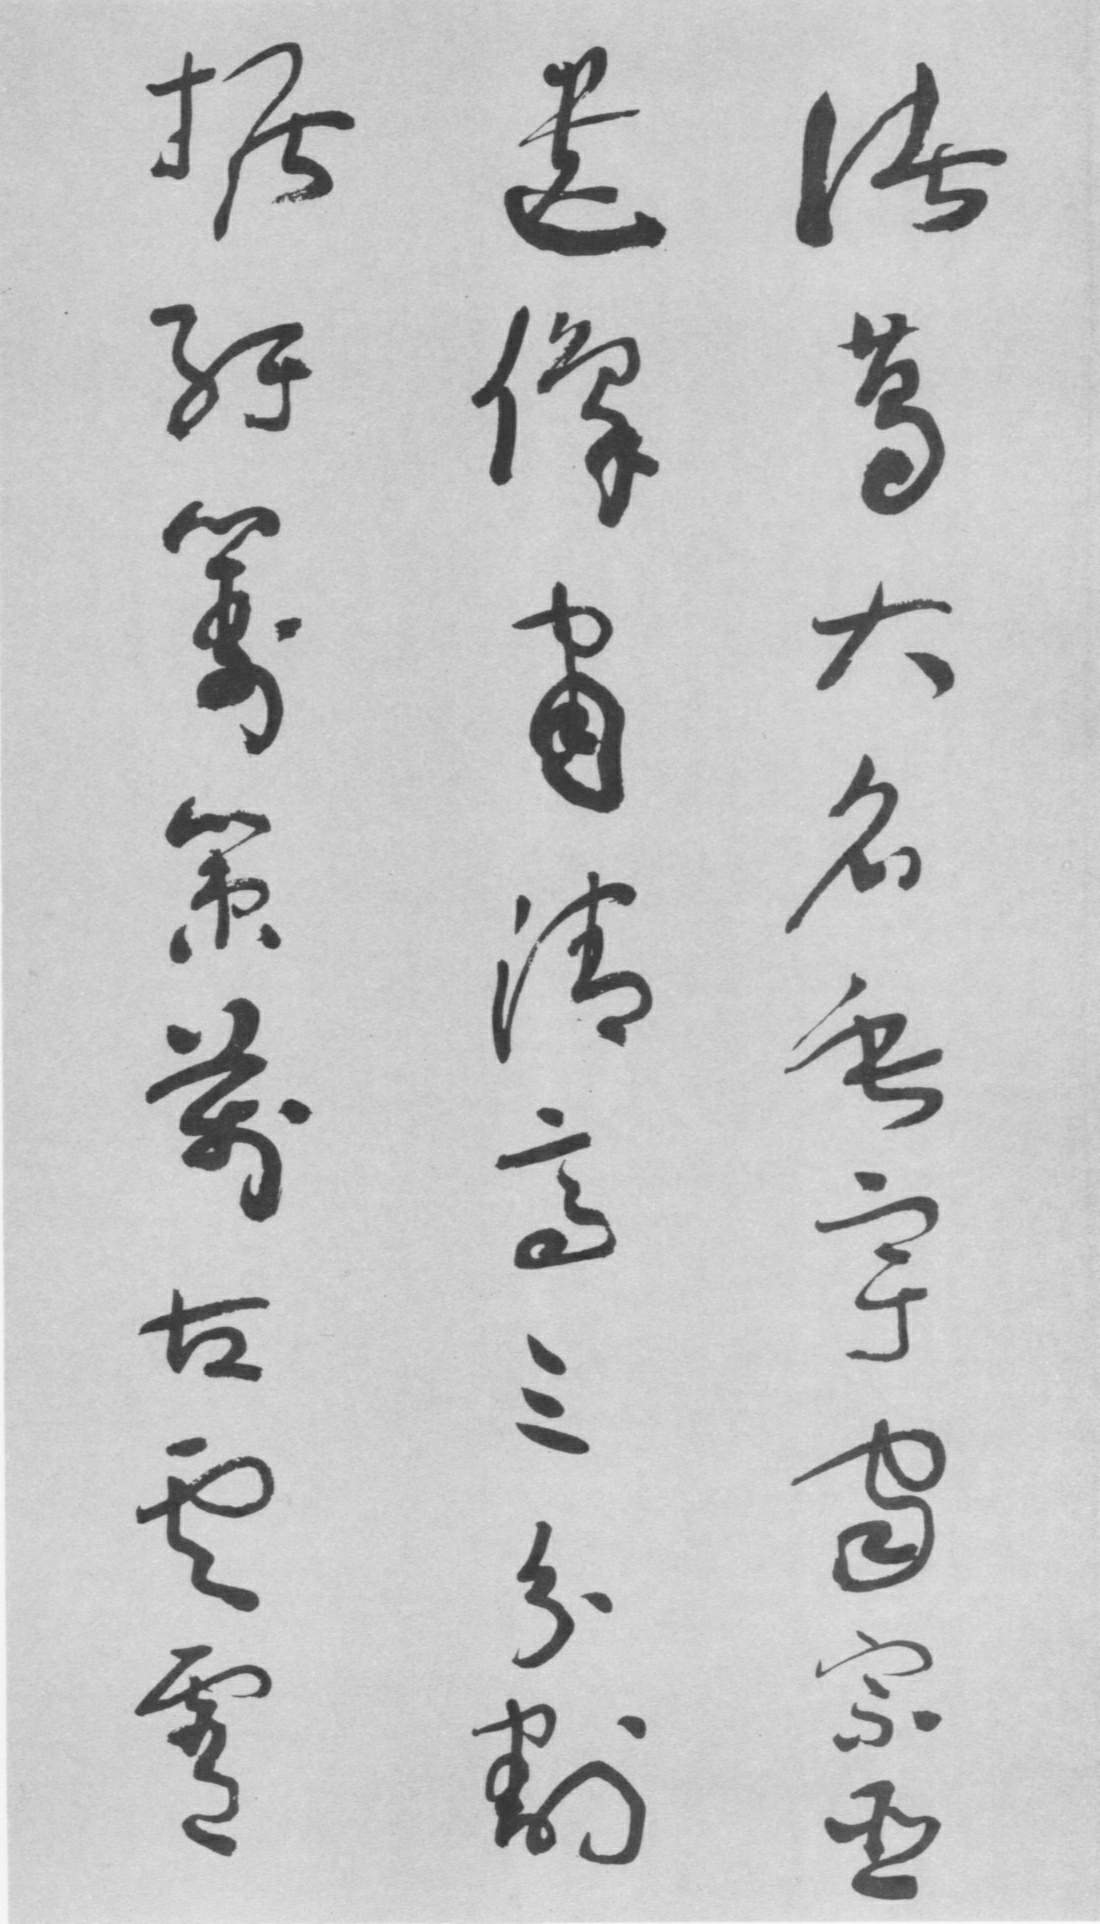 諸葛大名垂宇宙宗臣
遺像肅清高三分割
據紆籌策萬古雲霄